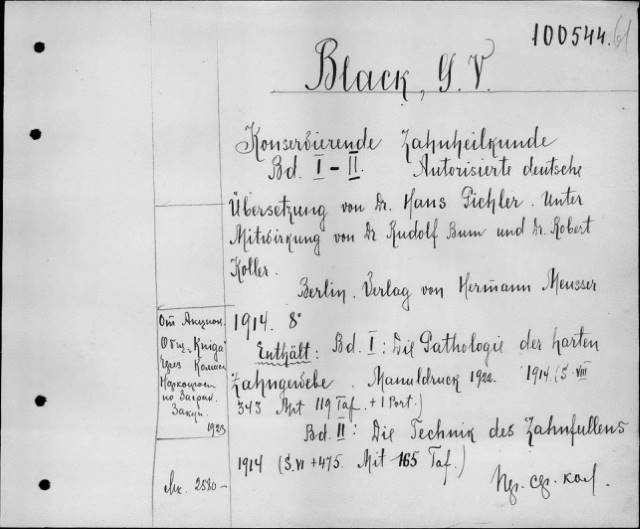 100544.
Black, G. V.
Konservierende Zahnheilkunde
Bd. I – II. Autorisierte deutsche
Übersetzung von Dr. Hans Pichler. Unter
Mitwirkung von Dr Rudolf Bum und Dr. Robert
Koller.
Berlin. Verlag von Hermann Meusser
1914. 8°
Enthält: Bd. I: Die Pathologie der harten
Zahngewebe. Manuldruck 1922. 1914. (S. VIII
343 Mit 119 Taf. + 1 Port.)
Bd. II: Die Technik des Zahnfüllens
1914 (S. VI + 475. Mit 165 Taf.)
От Акцион.
Общ. „Книга“
через
по Загран.
Закуп.
1923
Мк. 2580–